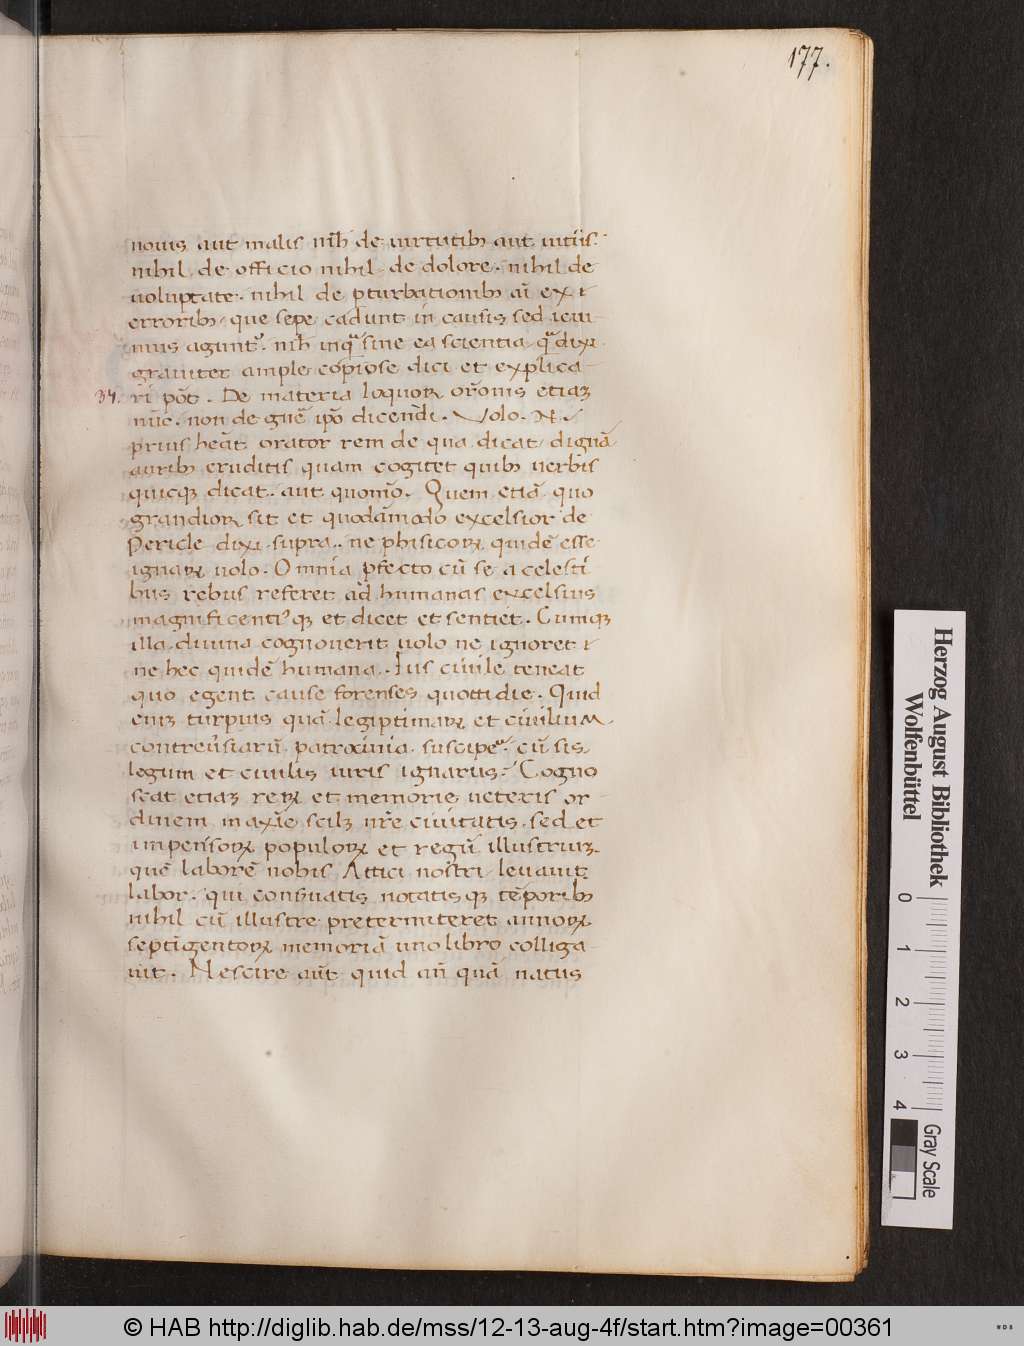 177.
nouis aut malis nih̄ de uirtutib; aut uitiis.
nihil de officio nihil de dolore. nihil de
uoluptate. nihil de pturbationib; aī ex &
errorib; que sepe cadunt in causis sed ieiu
nius agunt᷑. nih̄ inq̄ sine ea scientia q̄ dixi
grauiter ample copiose dici et explica-
34. ri pōt. De materia loquoꝝ or̄onis etiaꝫ
nūc. non de gn̄e ipō dicendi. Volo. N.
prius heāt orator rem de qua dicat dignā
aurib; eruditis quam cogitet quib; uerbis
quicqꝫ dicat. aut quomō. Quem etiā quo
grandioꝝ sit et quodāmodo excelsior de
Pericle dixi supra.. ne phisicoꝝ quidē esse
ignaꝝ uolo. Omnia pfecto cū se a celesti
bus rebus referet ad humanas excelsius
magnificenti᷒qꝫ et dicet et sentiet. Cumqꝫ
illa diuina cognouerit uolo ne ignoret &
ne hec quidē humana. Ius ciuile teneat
quo egent cause forenses quottidie. Quid
enīꝫ turpius quā legiptimaꝝ et ciuilium
contreu̓siarū patrocinia suscipeᷓ. cū sis
legum et ciuilis iuris ignarus. Cogno
scat etiaꝫ reꝝ et memorie ueteris or-
dinem maxīe scilꝫ nr̄e ciuitatis. sed et
impensoꝝ populoꝝ et regū illustriuꝫ.
quē laborē nobis Attici nostri leuauit
labor. qui conseruatis notatisqꝫ tēporib;
nihil cū illustre pretermitteret annoꝝ
septīgentoꝝ memoriā uno libro colliga-
uit. Nescire aūt quid añ quā natus
Herzog August Bibliothek
Wolfenbüttel
0 1 2 3 4
Gray Scale
© HAB http://diglib.hab.de/mss/12-13-aug-4f/start.htm?image=00361